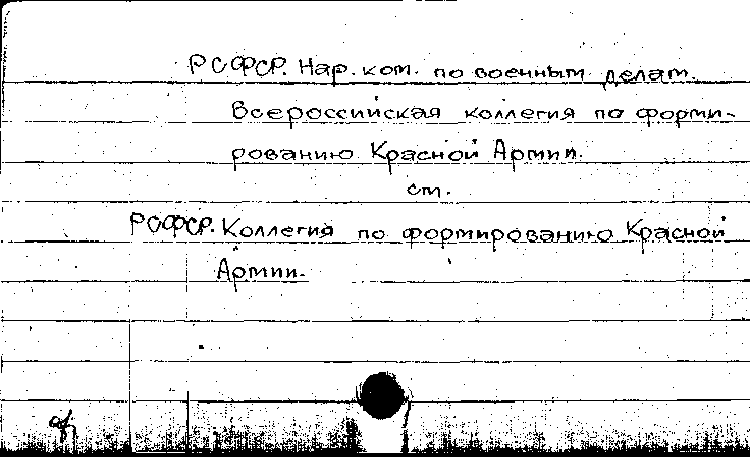 РСФСР. Нар. ком. по военным делам.
Всероссийская коллегия по форми-
рованию Красной Армии.
см.
РСФСР. Коллегия по формированию Красной
Армии.